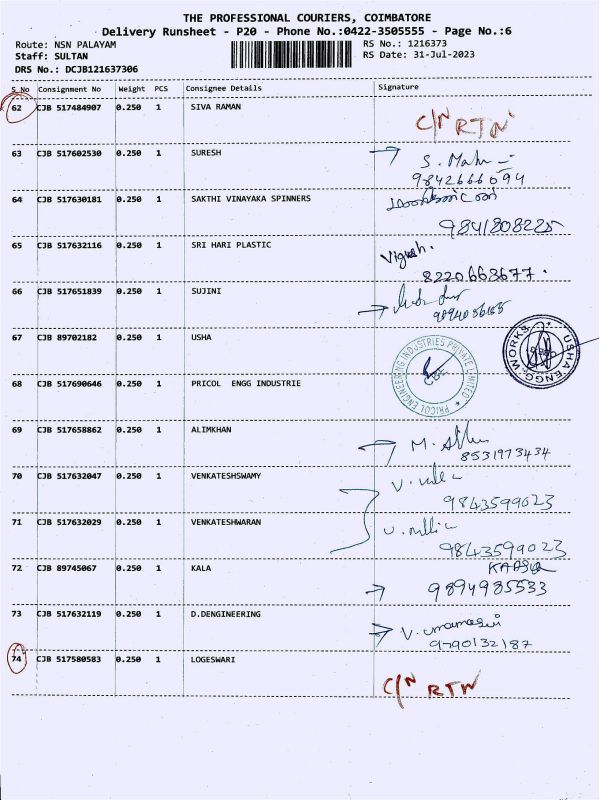 THE PROFESSIONAL COURIERS, COIMBATORE
Delivery Runsheet - P20 - Phone No.:0422-3505555 - Page No.:6
Route: NSN PALAYAM RS No.: 1216373
Staff: SULTAN RS Date: 31-Jul-2023
DRS No.: DCJB121637306
S_No Consignment No Weight PCS Consignee Details Signature
62 CJB 517484907 0.250 1 SIVA RAMAN
C/N RTN
63 CJB 517602530 0.250 1 SURESH
9842666094
64 CJB 517630181 0.250 1 SAKTHI VINAYAKA SPINNERS
9841808225
65 CJB 517632116 0.250 1 SRI HARI PLASTIC
8220663677.
66 CJB 517651839 0.250 1 SUJINI
67 CJB 89702182 0.250 1 USHA
USHA ENGG. WORKS
68 CJB 517690646 0.250 1 PRICOL ENGG INDUSTRIE
PRICOL ENGINEERING INDUSTRIES PRIVATE LIMITED
CBE
69 CJB 517658862 0.250 1 ALIMKHAN
8531973434
70 CJB 517632047 0.250 1 VENKATESHSWAMY
9843599023
71 CJB 517632029 0.250 1 VENKATESHWARAN
9843599023
72 CJB 89745067 0.250 1 KALA
9894985533
73 CJB 517632119 0.250 1 D.DENGINEERING
9790132187
74 CJB 517580583 0.250 1 LOGESWARI
C/N RTN